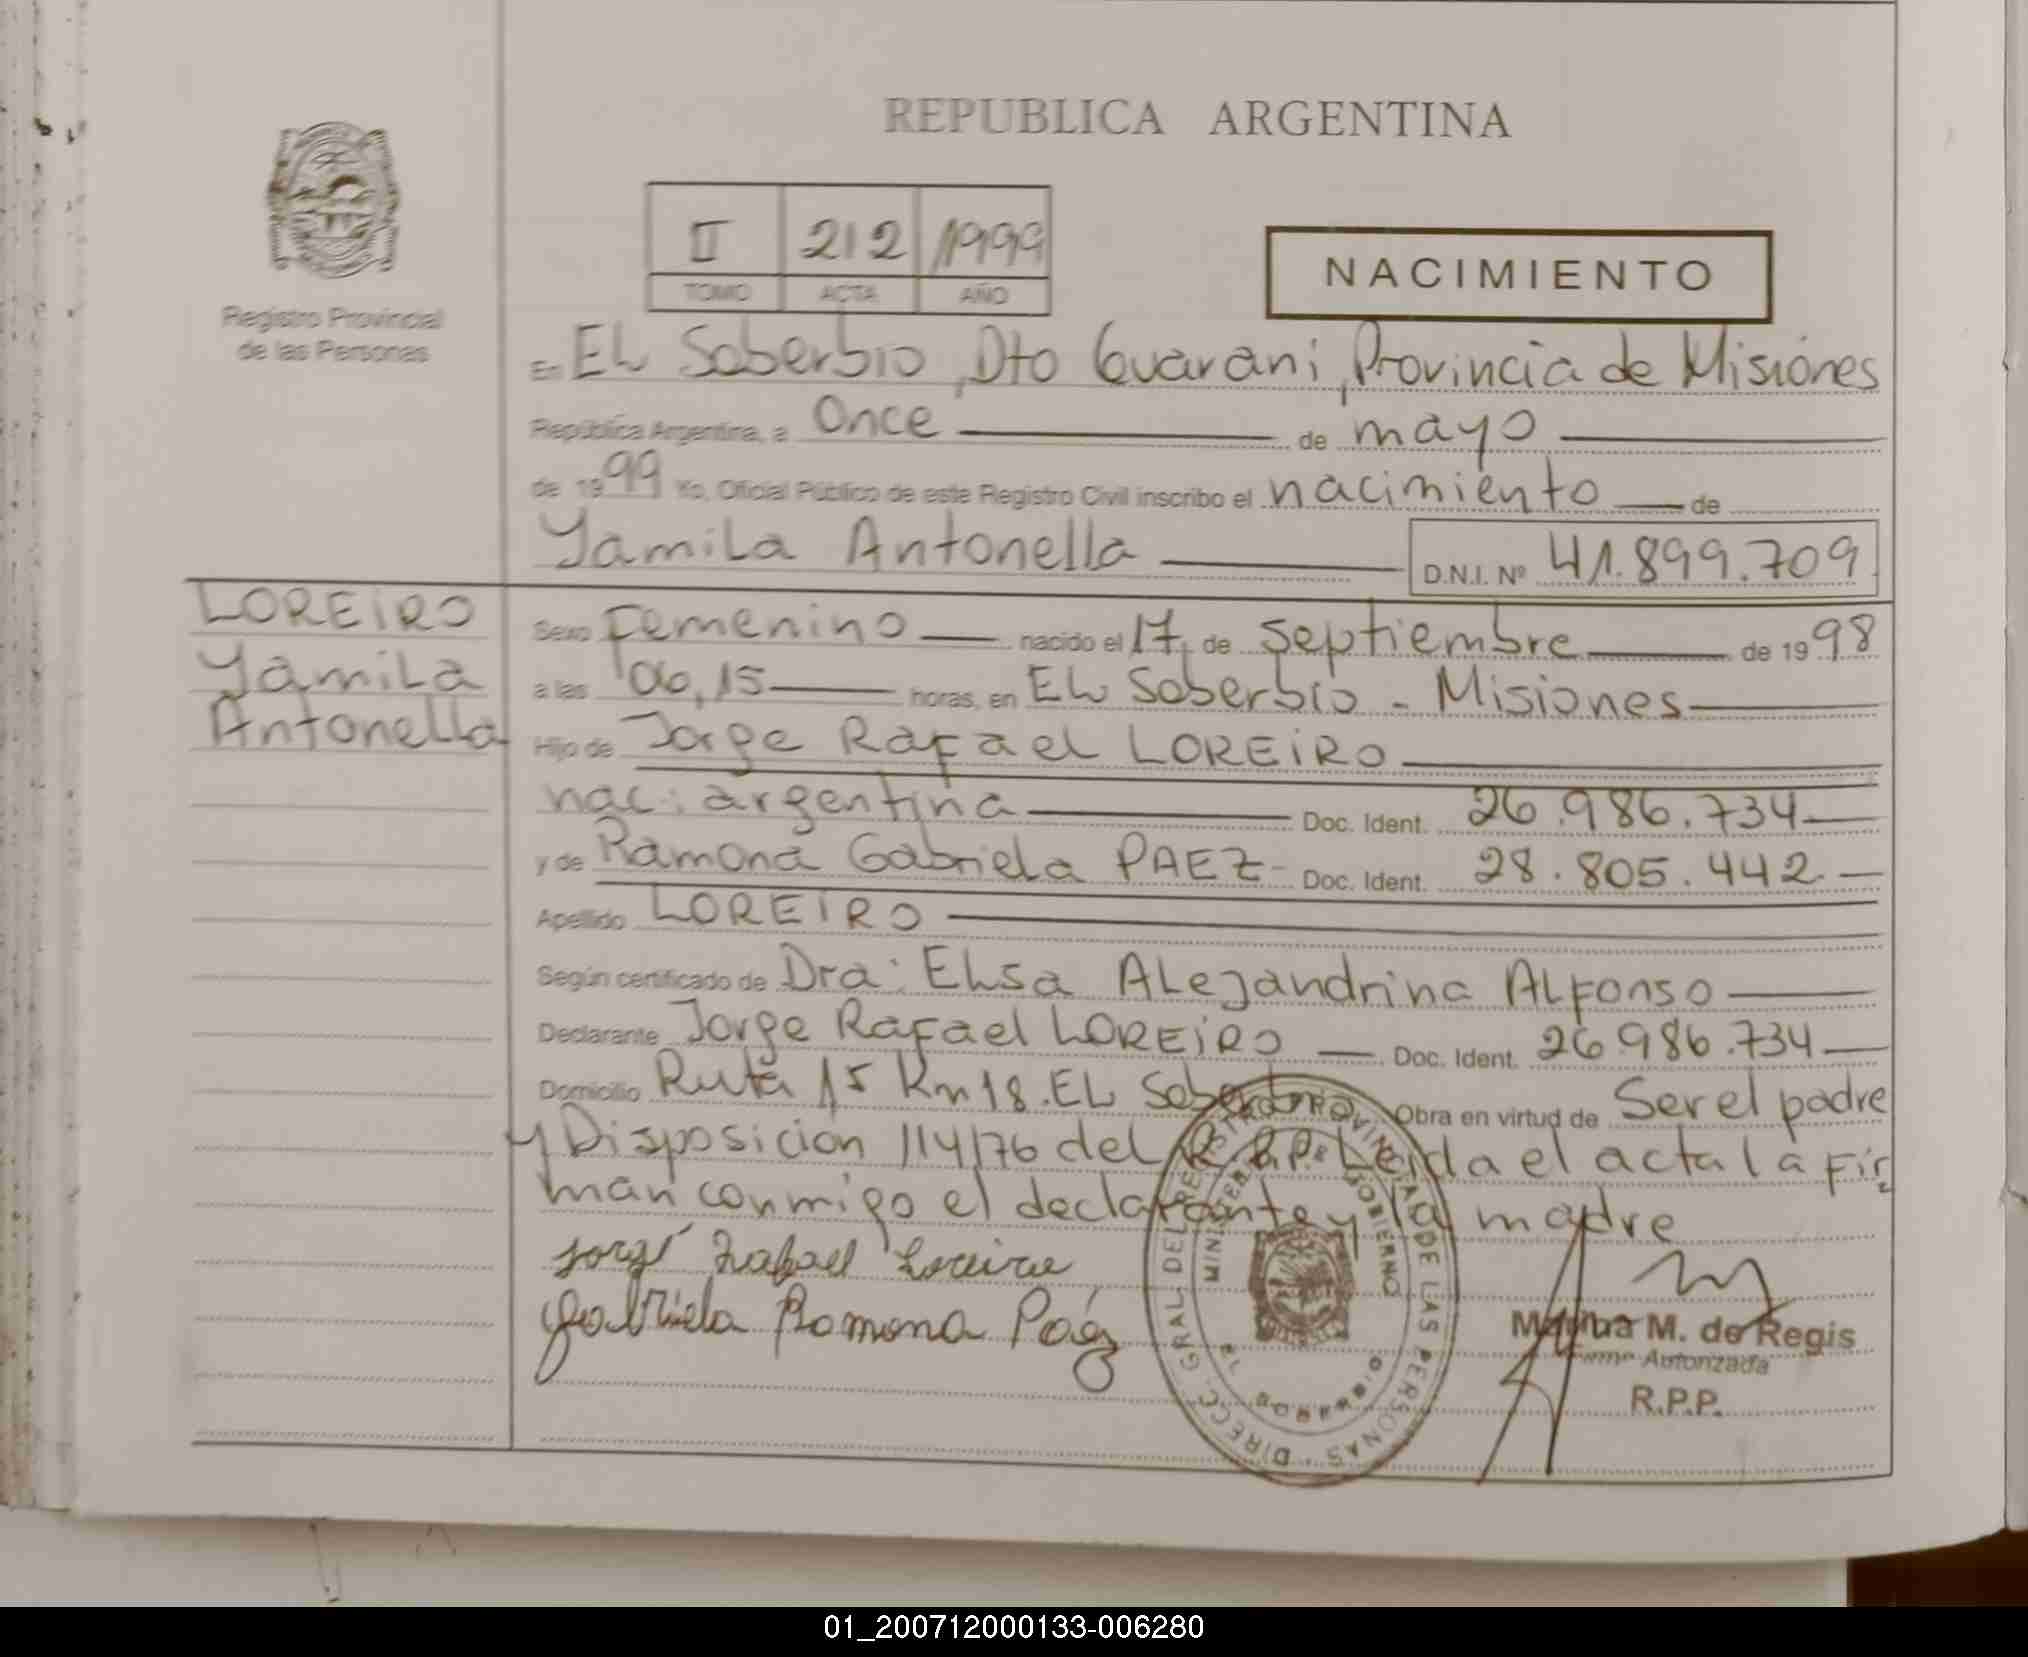 REPUBLICA ARGENTINA
Registro Provincial
de las Personas
II 212 1999
TOMO ACTA AÑO
NACIMIENTO
En EL Soberbio, Dto Guarani, Provincia de Misiones
República Argentina, a Once de mayo
de 1999 Yo, Oficial Público de este Registro Civil inscribo el nacimiento de
Yamila Antonella D.N.I. Nº 41.899.709
LOREIRO
Yamila
Antonella
Sexo Femenino nacido el 17 de Septiembre de 1998
a las 06,15 horas, en EL Soberbio - Misiones
Hijo de Jorge Rafael LOREIRO
nac: argentina Doc. Ident. 26.986.734
y de Ramona Gabriela PAEZ- Doc. Ident. 28.805.442
Apellido LOREIRO
Según certificado de Dra: ELSA ALEJandrina ALFonso
Declarante Jorge Rafael LOREIRO Doc. Ident. 26.986.734
Domicilio Ruta 15 Km 18. EL Soberbio Obra en virtud de Ser el padre
y Disposicion 114/76 del R.P.P. Leida el acta la fir
man conmigo el declarante y la madre
Jorge Rafael Loreiro
Gabriela Ramona Paéz
DIRECC. GRAL. DEL REGISTRO PROVINCIAL DE LAS PERSONAS
MINISTERIO DE GOBIERNO
M. de Regis
Firma Autorizada
R.P.P.
01_200712000133-006280